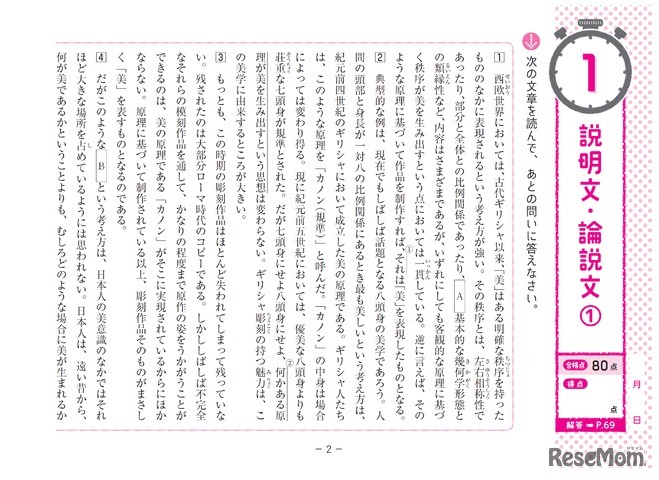 1
説明文・論説文①
月　日
合格点 80点
得点 点
解答➡P.69
次の文章を読んで、あとの問いに答えなさい。
1 西欧世界においては、古代ギリシャ以来、「美」はある明確な秩序を持った
もののなかに表現されるという考え方が強い。その秩序とは、左右相称性で
あったり、部分と全体との比例関係であったり、 A 基本的な幾何学形態と
の類縁性など、内容はさまざまであるが、いずれにしても客観的な原理に基づ
く秩序が美を生み出すという点においては一貫している。逆に言えば、その
ような原理に基づいて作品を制作すれば、①それは「美」を表現したものとなる。
2 典型的な例は、現在でもしばしば話題となる八頭身の美学であろう。人
間の頭部と身長が一対八の比例関係にあるとき最も美しいという考え方は、
紀元前四世紀のギリシャにおいて成立した美の原理である。ギリシャ人たち
は、このような原理を「カノン（規準）」と呼んだ。「カノン」の中身は場合
によっては変わり得る。現に紀元前五世紀においては、優美な八頭身よりも
荘重な七頭身が規準とされた。だが七頭身にせよ八頭身にせよ、②何かある原
理が美を生み出すという思想は変わらない。ギリシャ彫刻の持つ魅力は、こ
の美学に由来するところが大きい。
3 もっとも、この時期の彫刻作品はほとんど失われてしまって残っていな
い。残されたのは大部分ローマ時代のコピーである。しかししばしば不完全
なそれらの模刻作品を通して、かなりの程度まで原作の姿をうかがうことが
できるのは、美の原理である「カノン」がそこに実現されているからにほか
ならない。原理に基づいて制作されている以上、彫刻作品そのものがまさし
く「美」を表すものとなるのである。
4 だがこのような B という考え方は、日本人の美意識のなかではそれ
ほど大きな場所を占めているようには思われない。日本人は、遠い昔から、
何が美であるかということよりも、むしろどのような場合に美が生まれるか
－2－
ReseMom